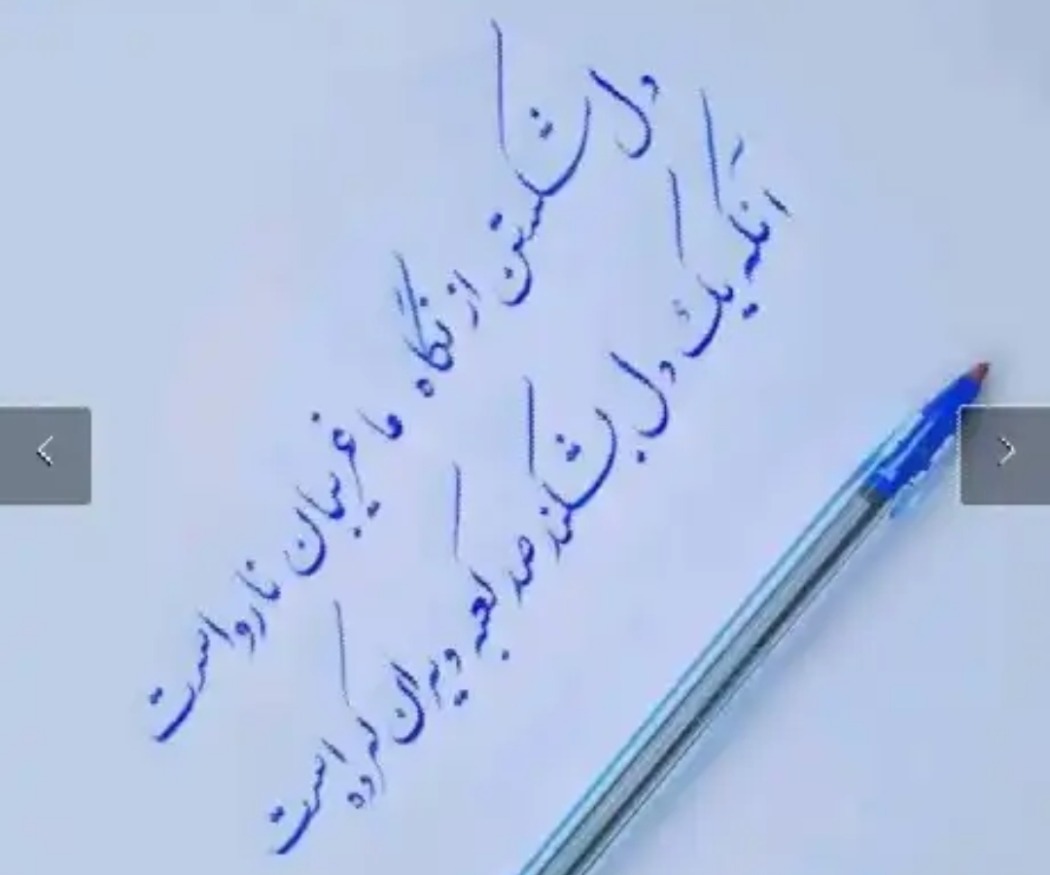 دل شکستن از نگاه ما غریبان نارواست
آنکه یک دل بشکند صد کعبه ویران کرده است